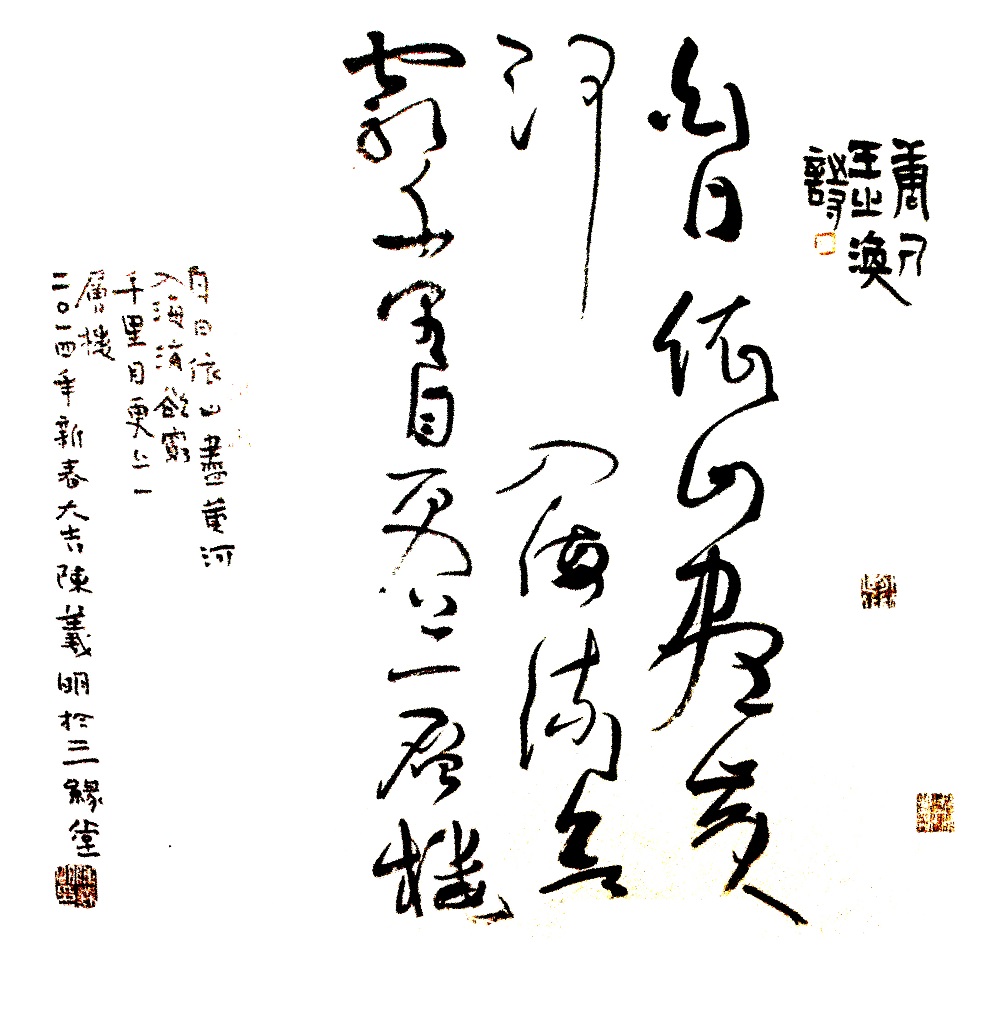 唐人
王之渙
詩
白日依山盡黃
河入海流欲
窮千里目更上一層樓
白日依山盡黃河
入海流欲窮
千里目更上一
層樓
二〇一四年新春大吉陳義明於三緣堂